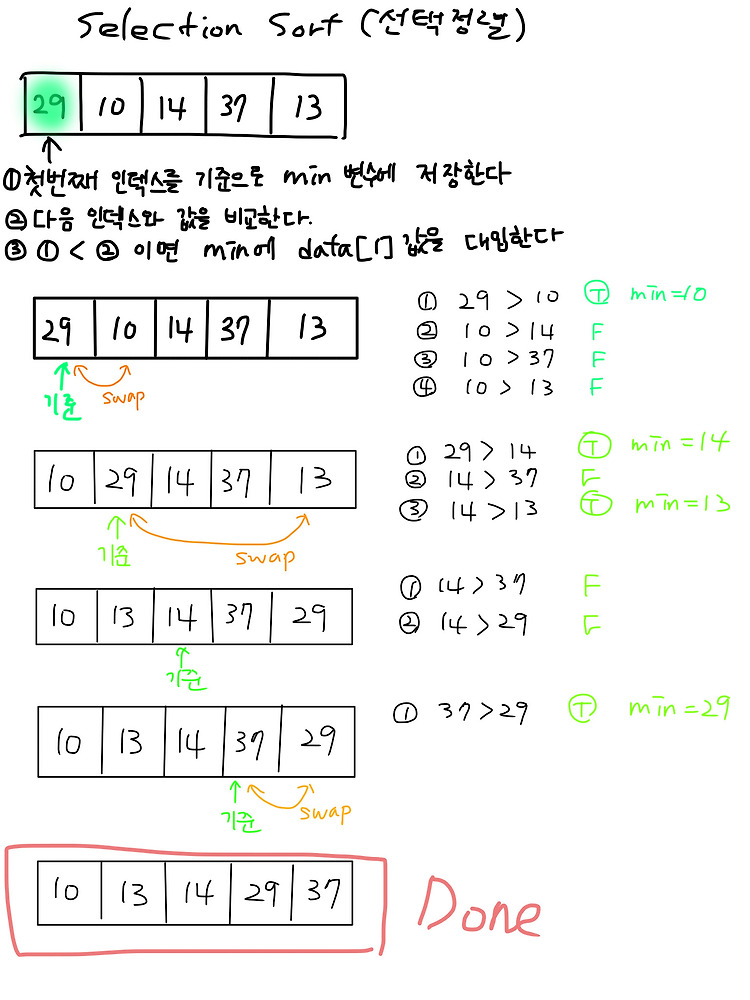 Selection Sort (선택정렬)
29 10 14 37 13
① 첫번째 인덱스를 기준으로 min 변수에 저장한다
② 다음 인덱스와 값을 비교한다.
③ ① < ② 이면 min에 data[1] 값을 대입한다
29 10 14 37 13
기준 swap
① 29 > 10 Ⓣ min=10
② 10 > 14 F
③ 10 > 37 F
④ 10 > 13 F
10 29 14 37 13
기준 swap
① 29 > 14 Ⓣ min=14
② 14 > 37 F
③ 14 > 13 Ⓣ min=13
10 13 14 37 29
기준
① 14 > 37 F
② 14 > 29 F
10 13 14 37 29
기준 swap
① 37 > 29 Ⓣ min=29
10 13 14 29 37
Done